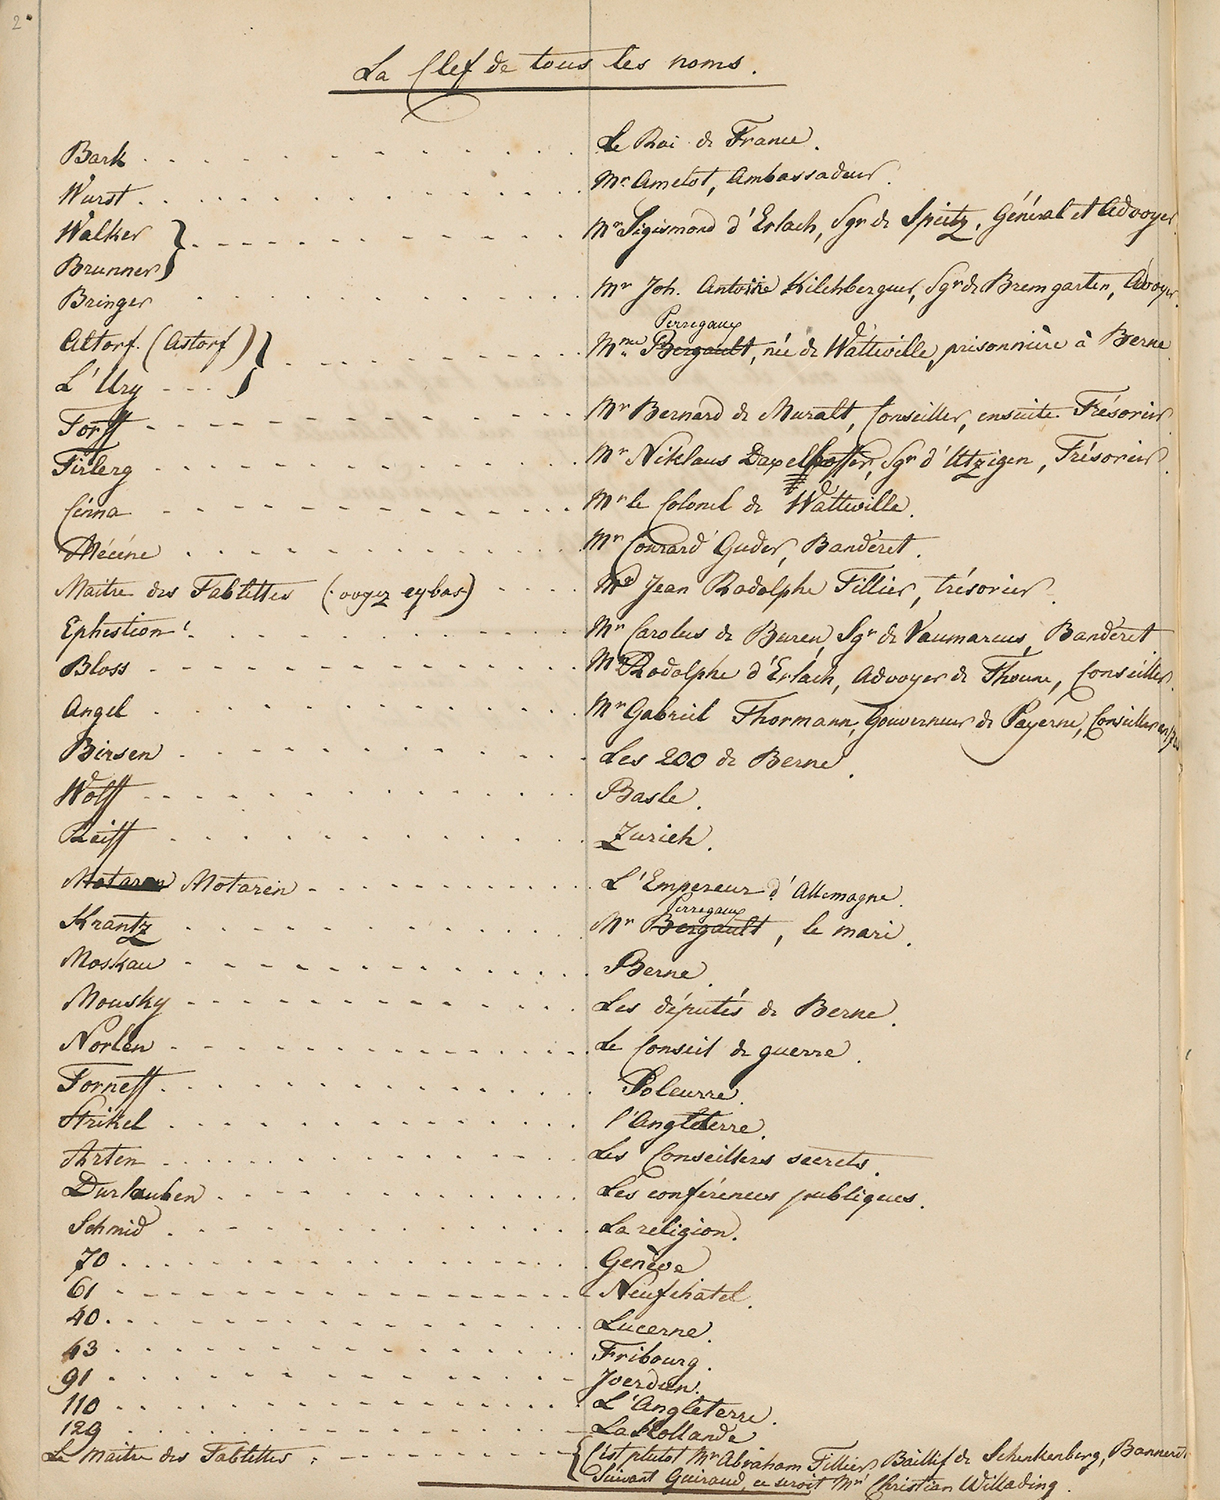 2.
La Clef de tous les noms.
Bark . . . . . . . . . . . Le Roi de France.
Wurst . . . . . . . . . . . Mr Amelot, Ambassadeur.
Walker } . . . . . . . . . . Mr Sigismond d'Erlach, Sgr de Spietz, Général et Advoyer.
Brunner }
Bringer . . . . . . . . . . Mr Joh. Antoine Kilchberguer, Sgr de Bremgarten, Advoyer.
Perregaux
Altorf. (Astorf) } . . . . . . . . Mme Bergault, née de Watteville, prisonnière à Berne
L'Ury - - - }
Torff - - - - - - - - - - Mr Bernard de Muralt, Conseiller, ensuite Trésorier.
Tirlerg - - - - - - - - - - Mr Niklaus Daxelhoffer, Sgr d'Utzigen, Trésorier.
Cinna - - - - - - - - - - Mr le Colonel de Watteville.
Mécène . . . . . . . . . . Mr Conrard Guder, Banderet.
Maitre des Tablettes (voyez cy bas) . . . . Mr Jean Rodolphe Tillier, trésorier.
Ephestion . . . . . . . . . . Mr Carolus de Buren, Sgr de Vaumarcus, Banderet
Bloss - - - - - - - - - - Mr Rodolphe d'Erlach, Advoyer de Thoune, Conseiller.
Angel . . . . . . . . . . Mr Gabriel Thormann, Gouverneur de Payerne, Conseiller
Birsen . . . . . . . . . . Les 200 de Berne.
Wolff - - - - - - - - - - Basle.
Reiff - - - - - - - - - - Zurich.
Motaren Motarin - - - - - - - - L'Empereur d'Allemagne.
Perregaux
Krantz . . . . . . . . . . Mr Bergault, le mari.
Moskau - - - - - - - - - - Berne.
Mousky - - - - - - - - - - Les députés de Berne.
Norlen - - - - - - - - - - Le Conseil de guerre.
Torneff . . . . . . . . . . Soleurre.
Strikel . . . . . . . . . . l'Angleterre.
Arten . . . . . . . . . . Les Conseillers secrets.
Durlauben . . . . . . . . . . Les conférences publiques.
Schmid . . . . . . . . . . La religion.
70 . . . . . . . . . . Genève
61 - - - - - - - - - - Neufchatel.
40 . . . . . . . . . . Lucerne.
43 . . . . . . . . . . Fribourg.
91 . . . . . . . . . . Yverdun.
110 . . . . . . . . . . L'Angleterre.
129 . . . . . . . . . . La Hollande
Le maitre des Tablettes : - - - - - - { C'est plutot Mr Abraham Tillier, Baillif de Schenkenberg, Banneret
Suivant Guiraud, ce seroit Mr Christian Willading.